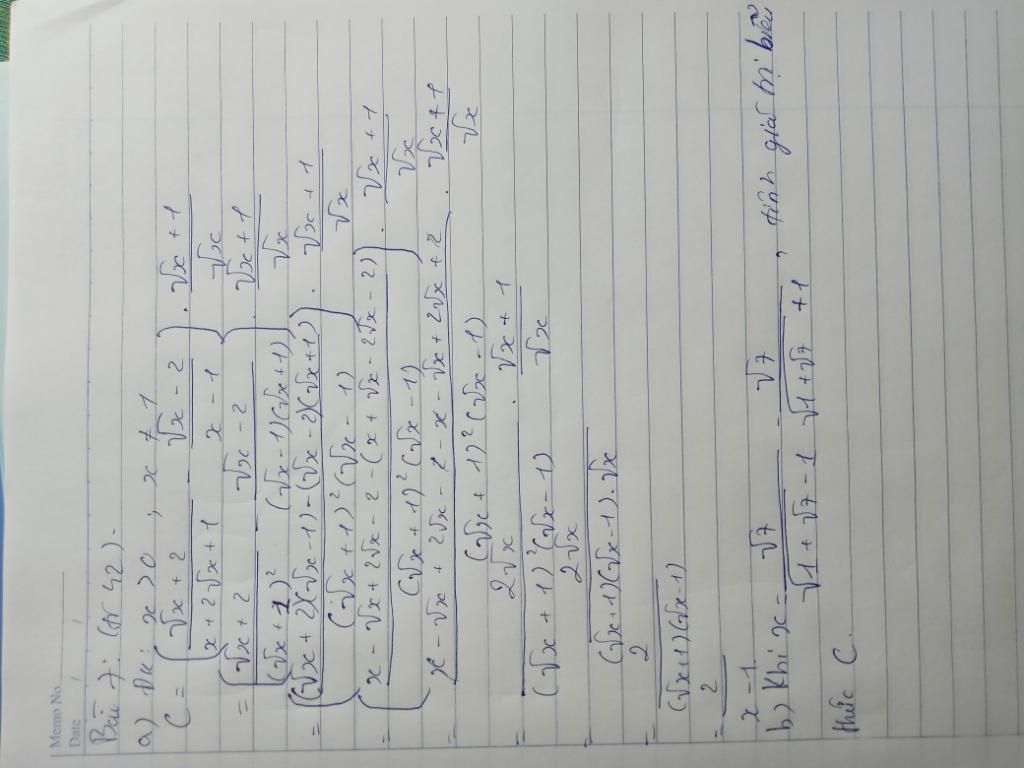 Memo No.
Date / /
Bài 7: (tr 42).
a) ĐK: x > 0 , x ≠ 1
C = ( (√x + 2)/(x + 2√x + 1) - (√x - 2)/(x - 1) ) . (√x + 1)/√x
= ( (√x + 2)/(√x + 1)² - (√x - 2)/((√x - 1)(√x + 1)) ) . (√x + 1)/√x
= ( ((√x + 2)(√x - 1) - (√x - 2)(√x + 1))/((√x + 1)² (√x - 1)) ) . (√x + 1)/√x
= ( (x - √x + 2√x - 2 - (x + √x - 2√x - 2))/((√x + 1)² (√x - 1)) ) . (√x + 1)/√x
= (x - √x + 2√x - 2 - x - √x + 2√x + 2)/((√x + 1)² (√x - 1)) . (√x + 1)/√x
= 2√x/((√x + 1)² (√x - 1)) . (√x + 1)/√x
= 2√x/((√x + 1)(√x - 1) . √x)
= 2/((√x + 1)(√x - 1))
= 2/(x - 1)
b) Khi x = √7/(√(1 + √7) - 1) - √7/(√(1 + √7) + 1) , tính giá trị biểu
thức C.